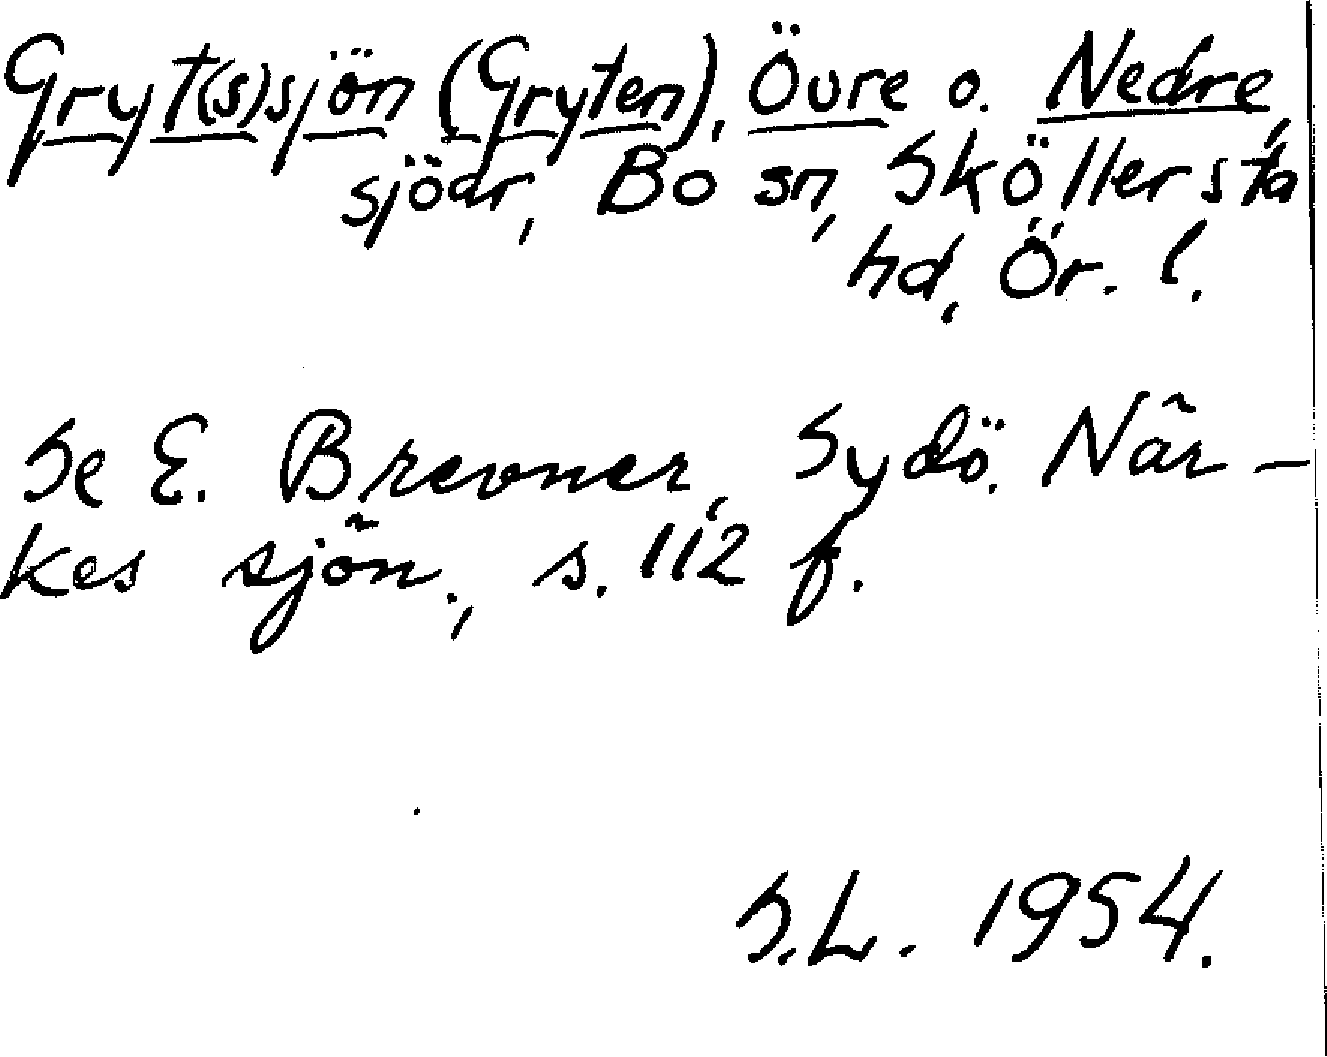 Gryt(s)sjön (Gryten), Övre o. Nedre,
sjöar, Bo sn, Sköllersta
hd, Ör. l.
Se E. Brevner, Sydö. När-
kes sjön., s. 112 f.
S.L. 1954.